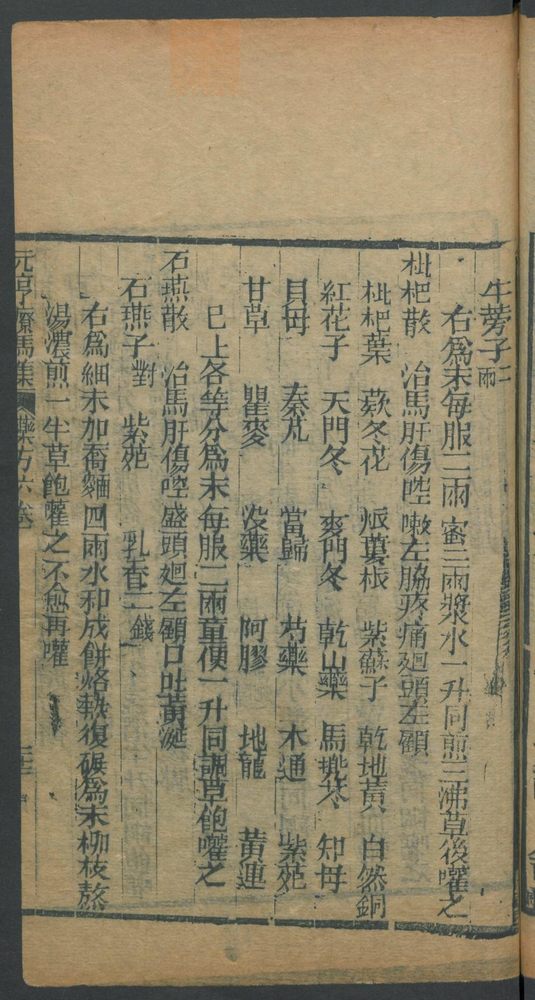 牛蒡子二兩
右爲末每服二兩蜜三兩漿水一升同煎三沸草後嚾之
枇杷散 治馬肝傷啌嗽左脇疼痛廻頭左顧
枇杷葉 欵冬花 栝蔞根 紫蘇子 乾地黃 自然銅
紅花子 天門冬 麥門冬 乾山藥 馬兜苓 知母
貝母 秦艽 當歸 芍藥 木通 紫菀
甘草 瞿麥 沒藥 阿膠 地龍 黃連
已上各等分爲末每服二兩童便一升同調草飽嚾之
石燕散 治馬肝傷啌盛頭廻左顧口吐黃涎
石燕子對 紫菀 乳香二錢
右爲細末加喬麵四兩水和成餅烙熟復碾爲末柳枝熬
湯濃煎一半草飽嚾之不愈再嚾
元亨療馬集 藥方六卷